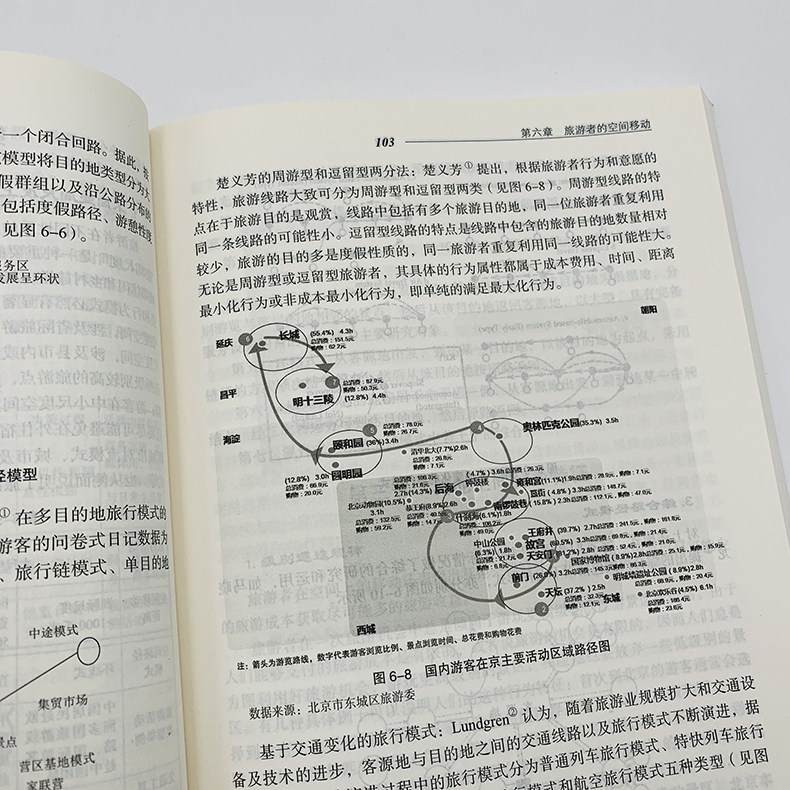 一个闭合回路。据此，
模型将目的地类型分为
假群组以及沿公路分布的
包括度假路径、游憩性度
见图6-6）。
服务区
发展呈环状
径模型
①在多目的地旅行模式的
游客的问卷式日记数据为
、旅行链模式、单目的地
中途模式
集贸市场
景点
营区基地模式
家联营
103
第六章 旅游者的空间移动
楚义芳的周游型和逗留型两分法：楚义芳①提出，根据旅游者行为和意愿的
特性，旅游线路大致可分为周游型和逗留型两类（见图6-8）。周游型线路的特
点在于旅游目的是观赏，线路中包括有多个旅游目的地，同一位旅游者重复利用
同一条线路的可能性小。逗留型线路的特点是线路中包含的旅游目的地数量相对
较少，旅游的目的多是度假性质的，同一旅游者重复利用同一线路的可能性大。
无论是周游型或逗留型旅游者，其具体的行为属性都属于成本费用、时间、距离
最小化行为或非成本最小化行为，即单纯的满足最大化行为。
朝阳
延庆
长城 (55.4%) 4.3h
总消费：151.5元
购物：62.2元
昌平
明十三陵
总消费：87.9元
购物：50.3元
(12.8%) 4.4h
海淀
颐和园 (36%) 3.4h
总消费：78.0元
购物：26.7元
奥林匹克公园(35.3%) 3.5h
清华北大(7.7%)2.6h
总消费：26.8元
购物：7.1元
圆明园
(12.8%) 3.0h
总消费：66.9元
购物：20.0元
后海
钟鼓楼
雍和宫(11.1%)
南锣鼓巷
北京动物园(10.5%)
3.1h
总消费：132.5元
购物：59.2元
恭王府(8.9%)2.6h
中山公园
王府井
故宫
天安门
国家博物馆
前门 (26.8%) 3.2h
天坛 (37.2%) 2.5h
总消费：32.3元
购物：12.1元
明城墙遗址公园 (8.9%)2.8h
总消费：68.9元，购物：20.4元
东城
北京欢乐谷(4.5%) 6.1h
总消费：186.4元
购物：23.6元
西城
注：箭头为游览路线，数字代表游客浏览比例、景点浏览时间、总花费和购物花费
图6-8 国内游客在京主要活动区域路径图
数据来源：北京市东城区旅游委
基于交通变化的旅行模式：Lundgren②认为，随着旅游业规模扩大和交通设
备及技术的进步，客源地与目的地之间的交通线路以及旅行模式不断演进，据
演进过程中的旅行模式分为普通列车旅行模式、特快列车旅行
行模式和航空旅行模式五种类型（见图